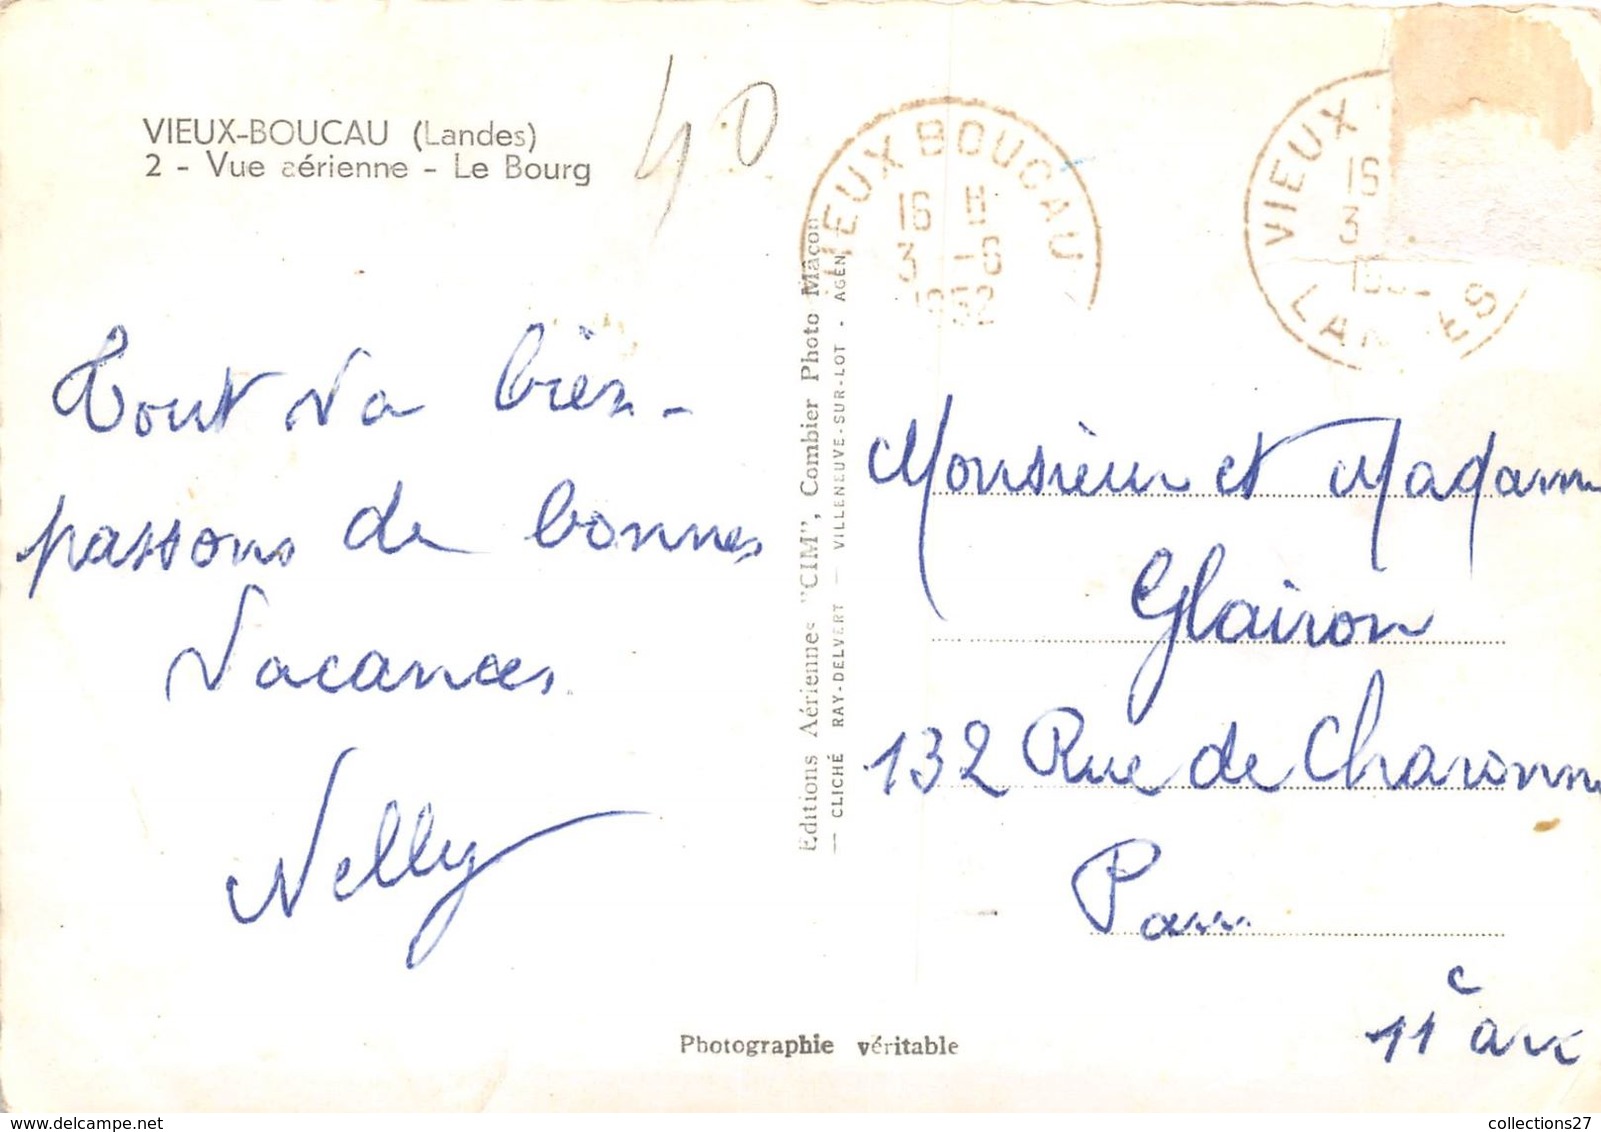 VIEUX-BOUCAU (Landes)
2 - Vue aérienne - Le Bourg
40
Tout va bien -
passons de bonnes
vacances
Nelly
Editions Aériennes "CIM", Combier Photo Mâcon
— CLICHÉ RAY-DELVERT — VILLENEUVE-SUR-LOT - AGEN
VIEUX BOUCAU
16 H
3 -6
1952
VIEUX
16
3
LANDES
Monsieur et Madame
Glairon
132 Rue de Charonne
Paris
11e arr
Photographie véritable
collections27